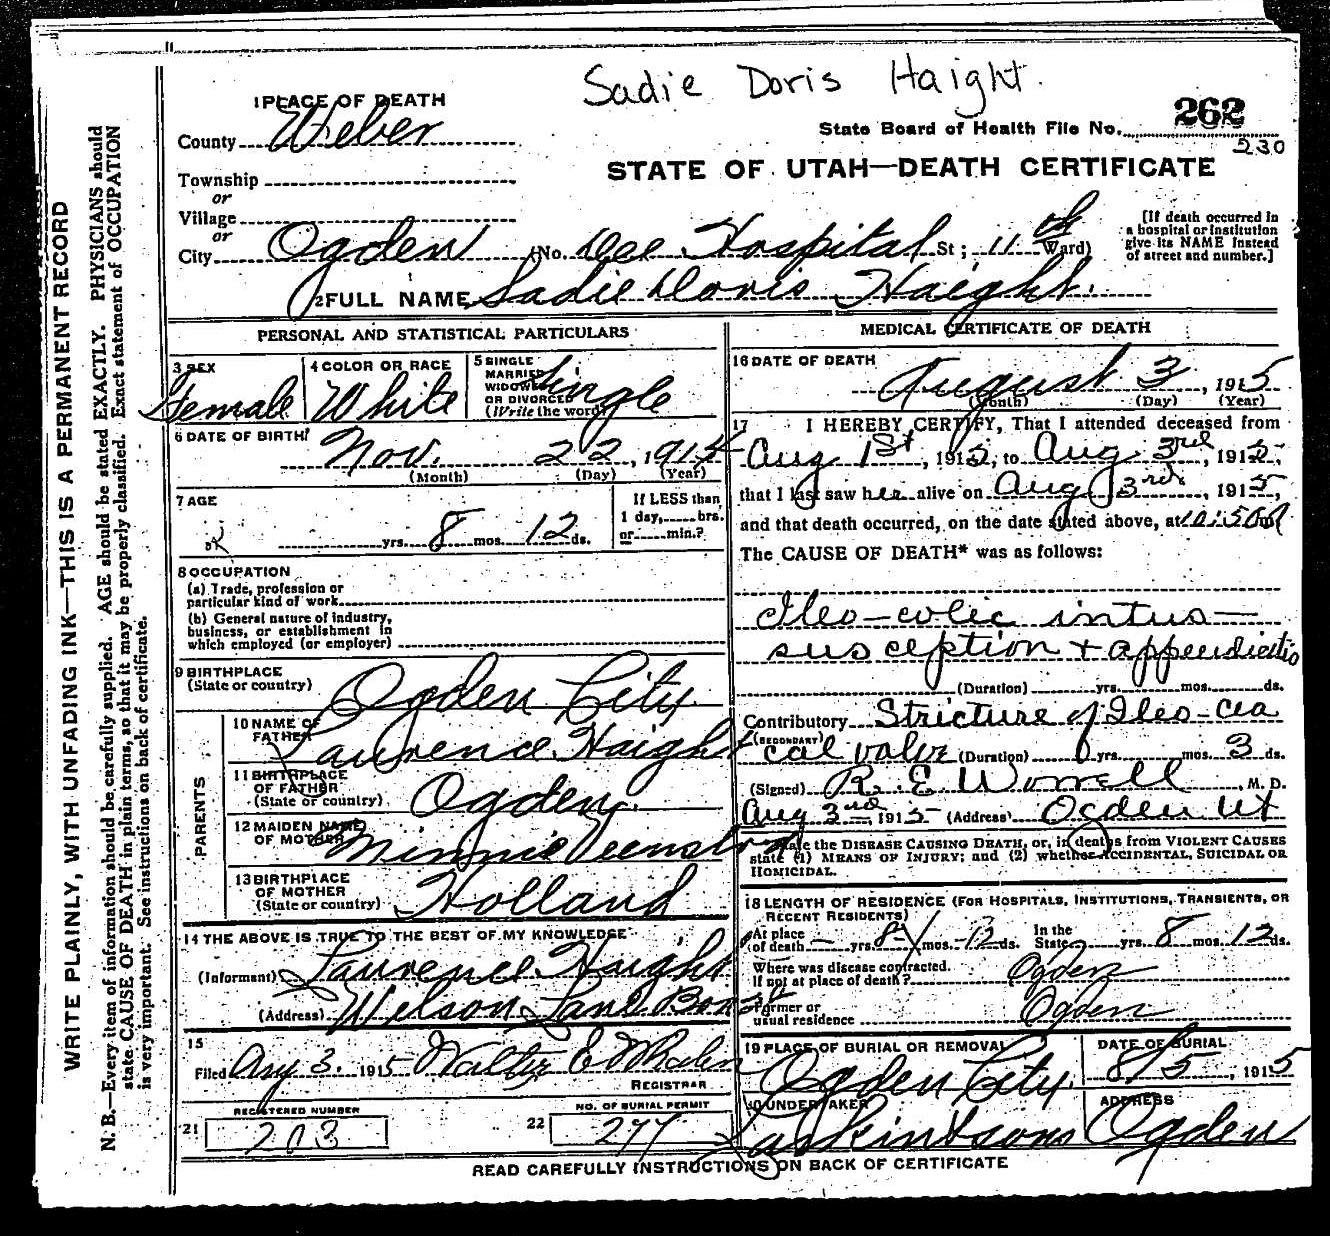 Sadie Doris Haight.
1 PLACE OF DEATH
262
County Weber
State Board of Health File No.
230
Township
STATE OF UTAH—DEATH CERTIFICATE
or
Village
or
City Ogden (No. Dee Hospital St; 11th Ward)
[If death occurred in a hospital or institution give its NAME instead of street and number.]
2 FULL NAME Sadie Doris Haight.
PERSONAL AND STATISTICAL PARTICULARS
3 SEX Female
4 COLOR OR RACE White
5 SINGLE MARRIED WIDOWED OR DIVORCED (Write the word) Single
6 DATE OF BIRTH Nov. 22, 1914
(Month) (Day) (Year)
7 AGE
yrs. 8 mos. 12 ds.
If LESS than 1 day, hrs. or min.?
8 OCCUPATION
(a) Trade, profession or particular kind of work
(b) General nature of industry, business, or establishment in which employed (or employer)
9 BIRTHPLACE (State or country) Ogden City
PARENTS
10 NAME OF FATHER Laurence Haight
11 BIRTHPLACE OF FATHER (State or country) Ogden.
12 MAIDEN NAME OF MOTHER Minnie Veenstra
13 BIRTHPLACE OF MOTHER (State or country) Holland
14 THE ABOVE IS TRUE TO THE BEST OF MY KNOWLEDGE
(Informant) Laurence Haight
(Address) Wilson Lane
15
Filed Aug 3. 1915 Walter E Whalen
REGISTRAR
21 REGISTERED NUMBER 203
22 NO. OF BURIAL PERMIT 277
MEDICAL CERTIFICATE OF DEATH
16 DATE OF DEATH
August 3, 1915
(Month) (Day) (Year)
17 I HEREBY CERTIFY, That I attended deceased from
Aug 1st, 1915, to Aug 3rd, 1915,
that I last saw her alive on Aug 3rd, 1915,
and that death occurred, on the date stated above, at 10:50
The CAUSE OF DEATH* was as follows:
Ileo-colic intus-
susception + appendicitis
(Duration) yrs. mos. ds.
Contributory Stricture of Ileo-cea
(SECONDARY) cal valve (Duration) yrs. mos. 3 ds.
(Signed) R. E. Worrell, M. D.
Aug 3rd, 1915 (Address) Ogden Ut
State the DISEASE CAUSING DEATH, or, in deaths from VIOLENT CAUSES
state (1) MEANS OF INJURY; and (2) whether ACCIDENTAL, SUICIDAL OR
HOMICIDAL.
18 LENGTH OF RESIDENCE (FOR HOSPITALS, INSTITUTIONS, TRANSIENTS, OR
RECENT RESIDENTS)
At place of death yrs. 8 mos. 12 ds. In the State yrs. 8 mos. 12 ds.
Where was disease contracted. If not at place of death? Ogden
Former or usual residence Ogden
19 PLACE OF BURIAL OR REMOVAL Ogden City
DATE OF BURIAL 8/5, 1915
20 UNDERTAKER Larkin &amp; Sons
ADDRESS Ogden
READ CAREFULLY INSTRUCTIONS ON BACK OF CERTIFICATE
WRITE PLAINLY, WITH UNFADING INK—THIS IS A PERMANENT RECORD
N. B.—Every item of information should be carefully supplied. AGE should be stated EXACTLY. PHYSICIANS should
state CAUSE OF DEATH in plain terms, so that it may be properly classified. Exact statement of OCCUPATION
is very important. See instructions on back of certificate.